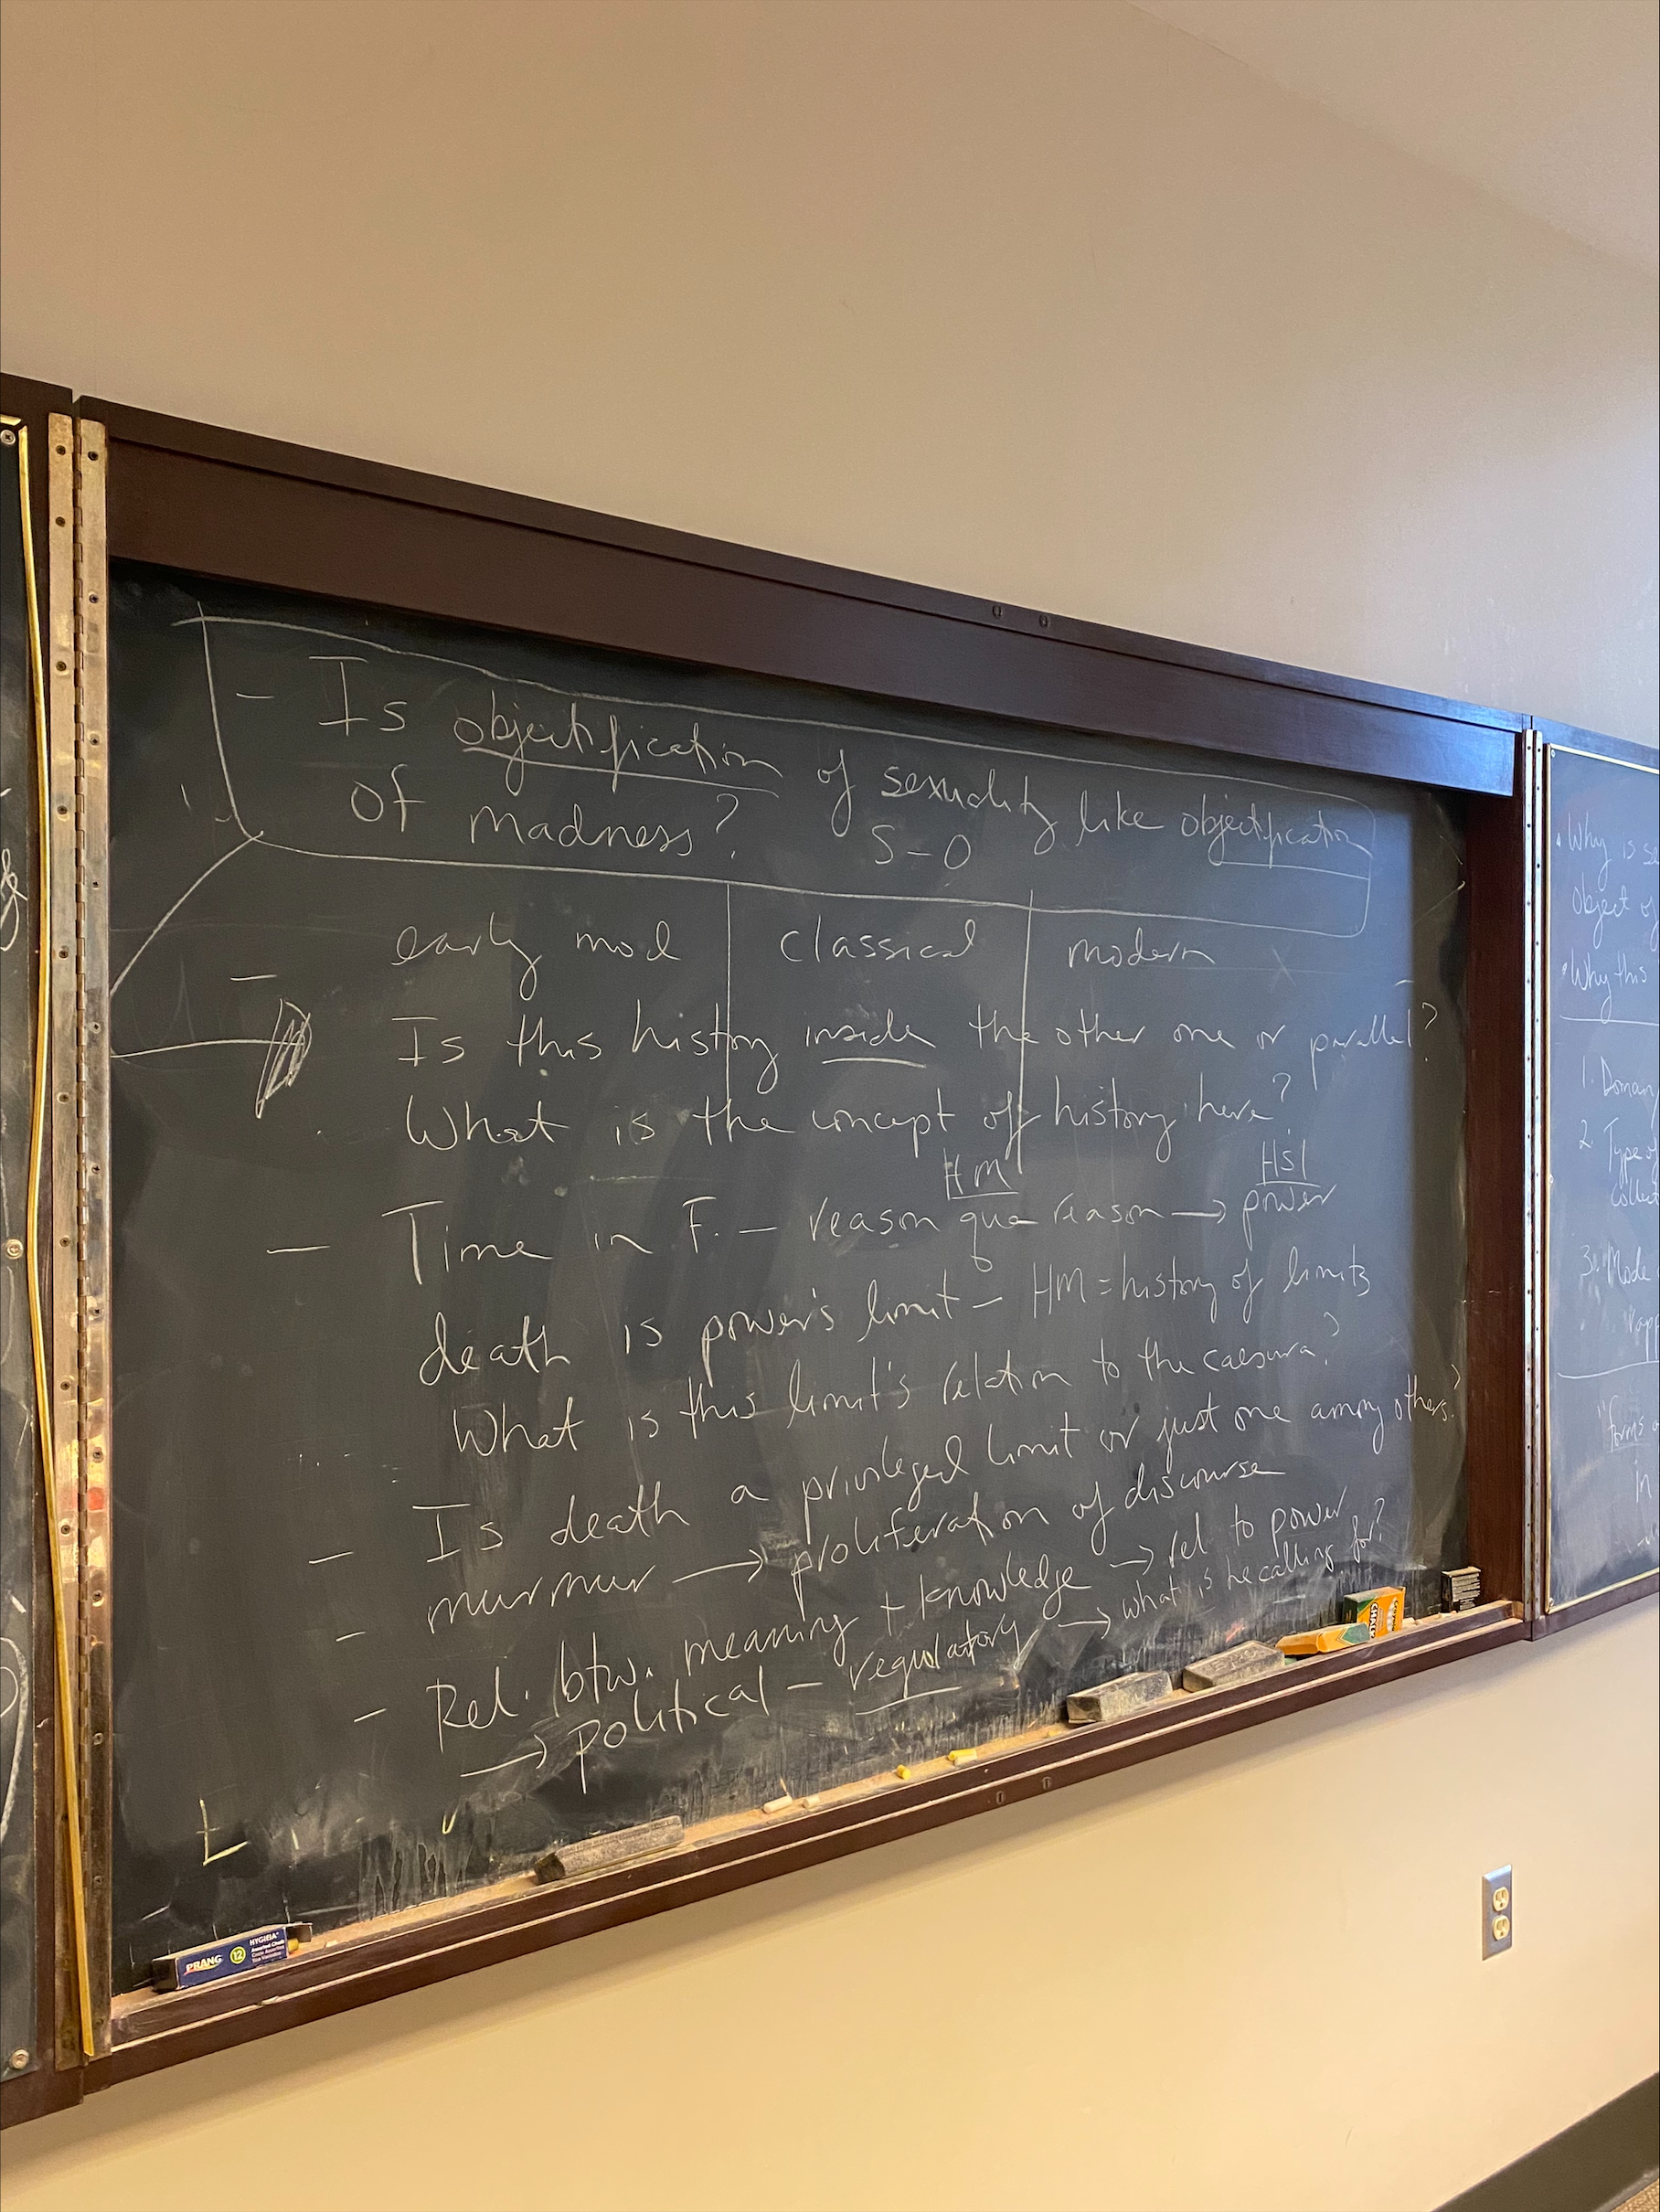 - Is objectification of sexuality like objectification
of madness? S-O
- early mod | classical | modern
Is this history inside the other one or parallel?
What is the concept of history here?
HM HS1
- Time in F. - reason qua reason → power
death is power's limit - HM = history of limits
What is this limit's relation to the caesura?
- Is death a privileged limit or just one among others?
- murmur → proliferation of discourse
- Rel. btw. meaning + knowledge → rel to power
→ political - regulatory → what is he calling for?
PRANG 12 HYGIEIA
CHALK
• Why is
object of
• Why this
1. Domain
2. Type of
3. Mode
"forms
in